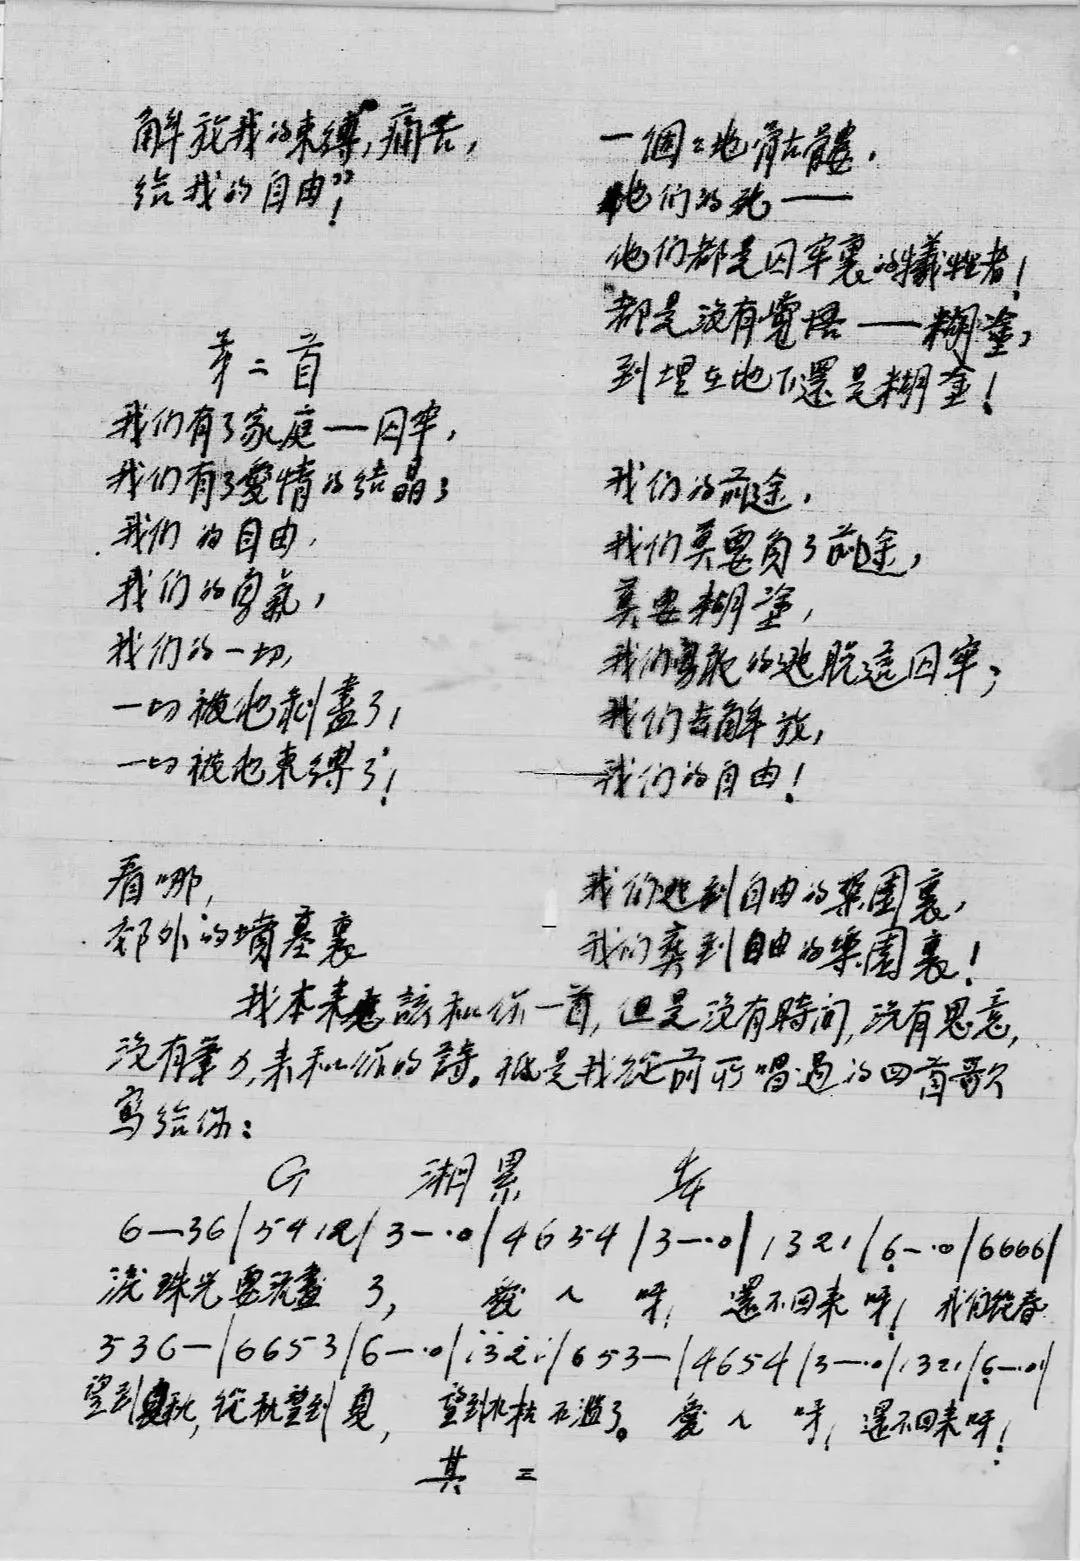 解放我的束縛,痛苦,
给我的自由”!
第二首
我们有了家庭——囚牢,
我们有了愛情的结晶;
我们的自由,
我们的勇氣,
我们的一切,
一切被他剥盡了,
一切被他束縛了!
看哪,
郊外的墳墓裏
一個々地骷髏,
他们的死——
他们都是囚牢裏的犠牲者!
都是沒有覺悟——糊塗,
到埋在地下還是糊塗!
我们的前途,
我们莫要負了前途,
莫要糊塗,
我们勇敢的逃脱這囚牢;
我们去解放,
我们的自由!
我们跑到自由的樂園裏,
我们奔到自由的樂園裏!
我本来應該和你一首,但是沒有時间,沒有思意,
沒有筆力,来和你的詩。祗是我從前所唱過的四首歌
寫给你:
G 湘累
6—36|5412|3—·0|4654|3—·0|1321|6—·0|6666|
淚珠兒要流盡了, 愛人呀, 還不回来呀, 我们從春
536—|6653|6—·0|i32i|653—|4654|3—·0|1321|6—·0|
望到秋,從秋望到夏, 望到水枯石濫了。愛人呀, 還不回来呀!
其二